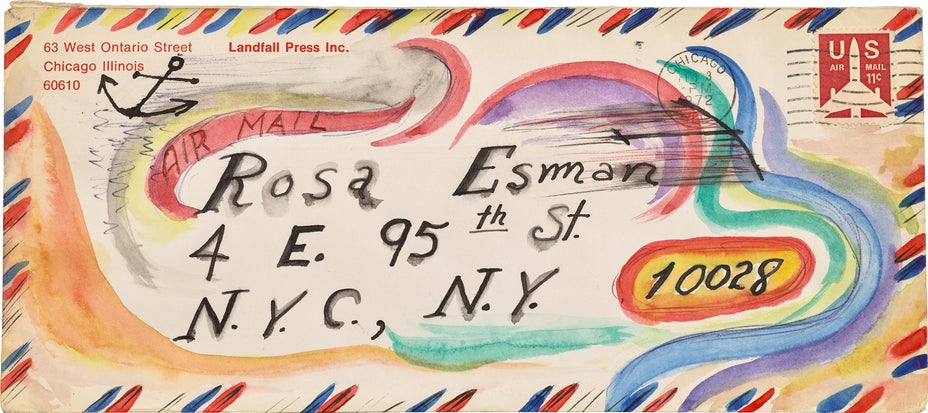 63 West Ontario Street
Landfall Press Inc.
Chicago Illinois
60610
CHICAGO
PM
US
AIR MAIL
11¢
AIR MAIL
Rosa Esman
4 E. 95th St.
10028
N.Y.C., N.Y.